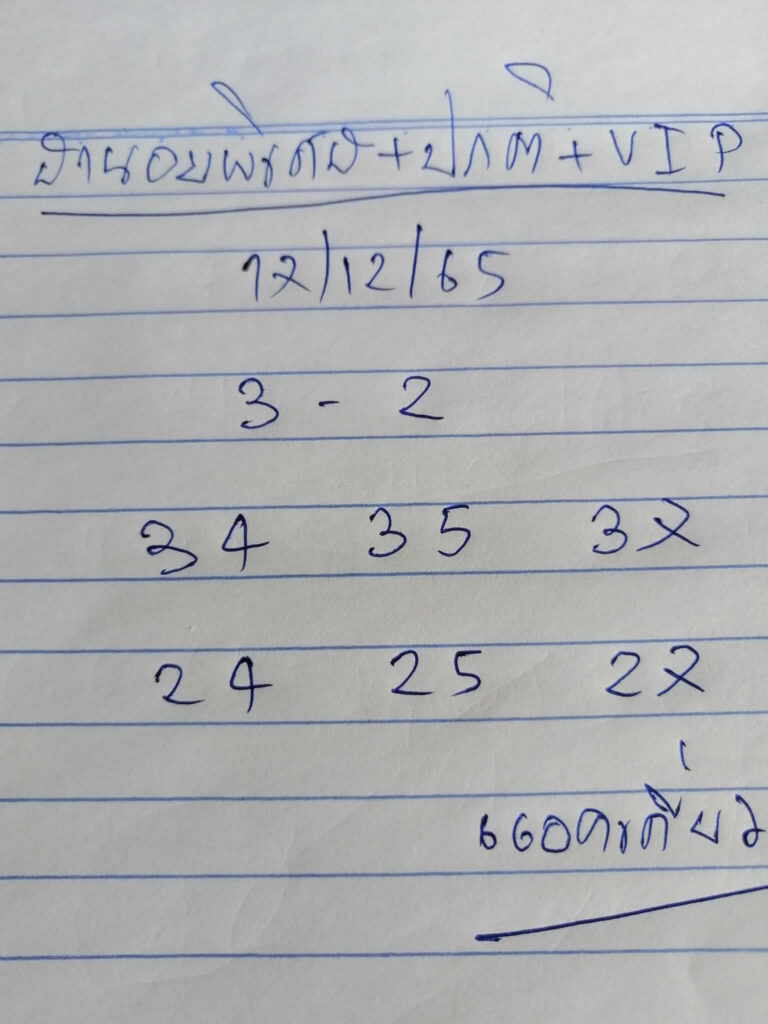 ฮานอยพิเศษ+ปกติ+VIP
17/12/65
3 - 2
34 35 37
24 25 27
แอดเดี่ยว